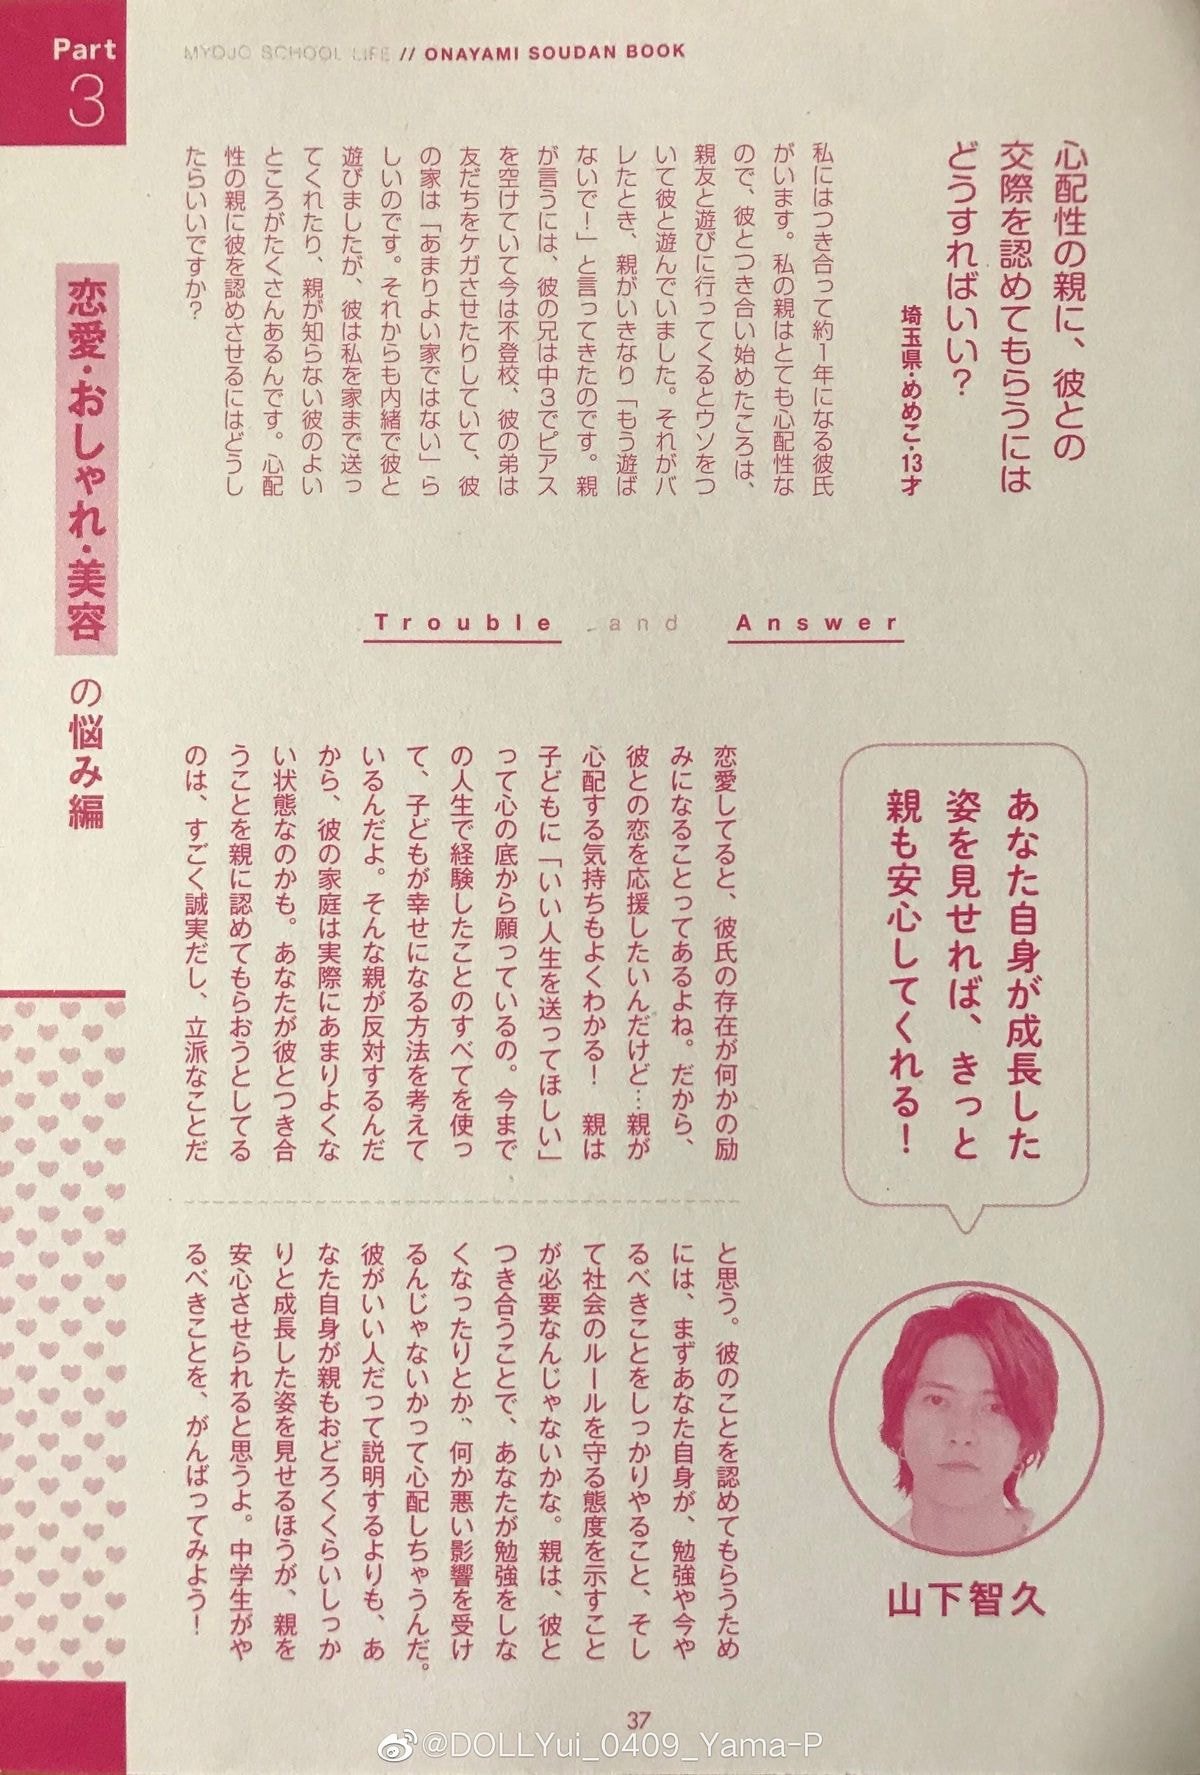 Part
3
MYOJO SCHOOL LIFE // ONAYAMI SOUDAN BOOK
恋愛・おしゃれ・美容の悩み編
心配性の親に、彼との
交際を認めてもらうには
どうすればいい？
埼玉県・めめこ・13才
私にはつき合って約1年になる彼氏
がいます。私の親はとても心配性な
ので、彼とつき合い始めたころは、
親友と遊びに行ってくるとウソをつ
いて彼と遊んでいました。それがバ
レたとき、親がいきなり「もう遊ば
ないで！」と言ってきたのです。親
が言うには、彼の兄は中3でピアス
を空けていて今は不登校、彼の弟は
友だちをケガさせたりしていて、彼
の家は「あまりよい家ではない」ら
しいのです。それからも内緒で彼と
遊びましたが、彼は私を家まで送っ
てくれたり、親が知らない彼のよい
ところがたくさんあるんです。心配
性の親に彼を認めさせるにはどうし
たらいいですか？
Trouble and Answer
あなた自身が成長した
姿を見せれば、きっと
親も安心してくれる！
山下智久
恋愛してると、彼氏の存在が何かの励
みになることってあるよね。だから、
彼との恋を応援したいんだけど…親が
心配する気持ちもよくわかる！　親は
子どもに「いい人生を送ってほしい」
って心の底から願っているの。今まで
の人生で経験したことのすべてを使っ
て、子どもが幸せになる方法を考えて
いるんだよ。そんな親が反対するんだ
から、彼の家庭は実際にあまりよくな
い状態なのかも。あなたが彼とつき合
うことを親に認めてもらおうとしてる
のは、すごく誠実だし、立派なことだ
と思う。彼のことを認めてもらうため
には、まずあなた自身が、勉強や今や
るべきことをしっかりやること、そし
て社会のルールを守る態度を示すこと
が必要なんじゃないかな。親は、彼と
つき合うことで、あなたが勉強をしな
くなったりとか、何か悪い影響を受け
るんじゃないかって心配しちゃうんだ。
彼がいい人だって説明するよりも、あ
なた自身が親もおどろくくらいしっか
りと成長した姿を見せるほうが、親を
安心させられると思うよ。中学生がや
るべきことを、がんばってみよう！
37
@DOLLYui_0409_Yama-P